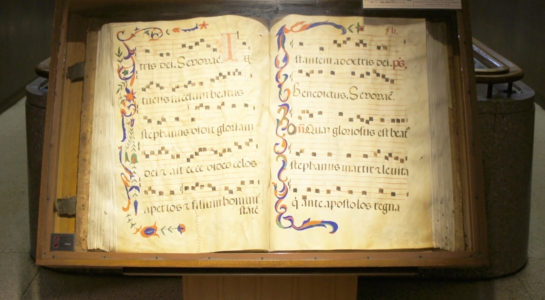 tris dei. Sevovae. I
tuens in celum beatus
stephanus vidit gloriam
dei & ait ecce video celos
apertos & filium hominis
state
stantem a dextris dei. ps.
Benedictus. Sevovae.
Quar gloriosus est beat
stephanus martir levita
q ante apostolos regna